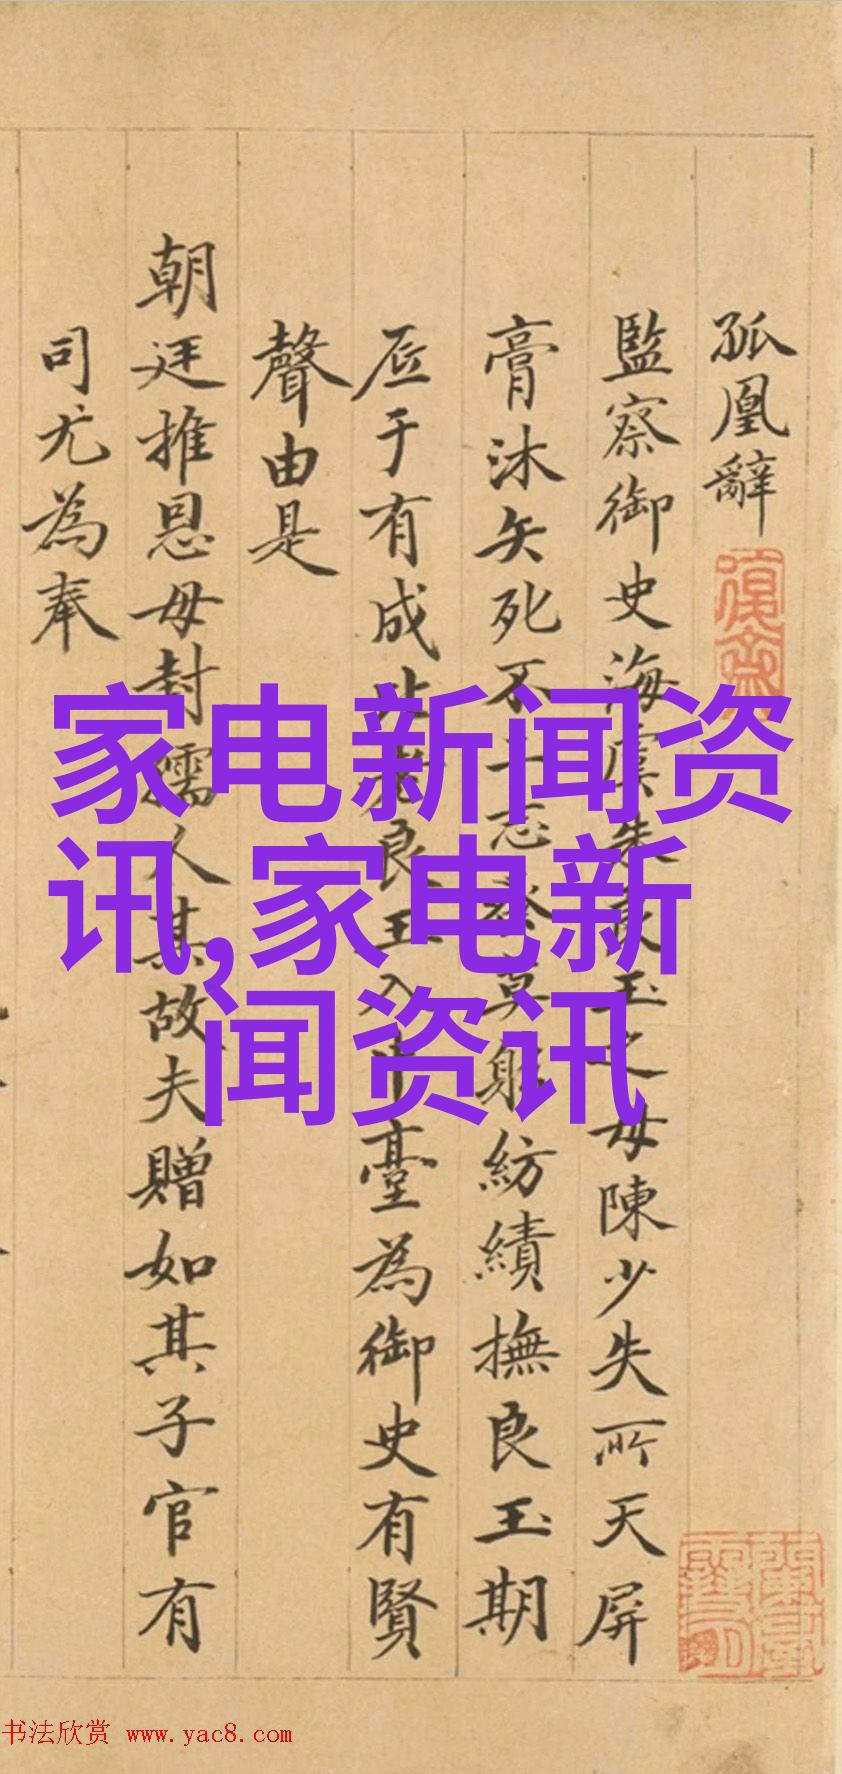 孤凰辭
監察御史海虞朱良玉之母陳少失所天屏
膏沐矢死不二志躬紡績撫良玉期
底于有成此老良玉入中臺為御史有賢
聲由是
朝廷推恩母封孺人其故夫贈如其子官有
司尤為奉
家电新闻资
讯,家电新
闻资讯
书法欣赏 www.yac8.com